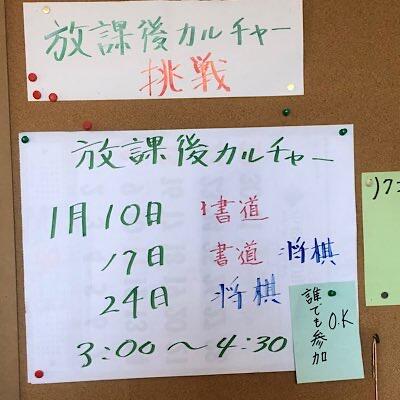 放課後カルチャー
挑戦
放課後カルチャー
1月10日 書道
17日 書道 将棋
24日 将棋
3:00～4:30
誰でも参加
O.K